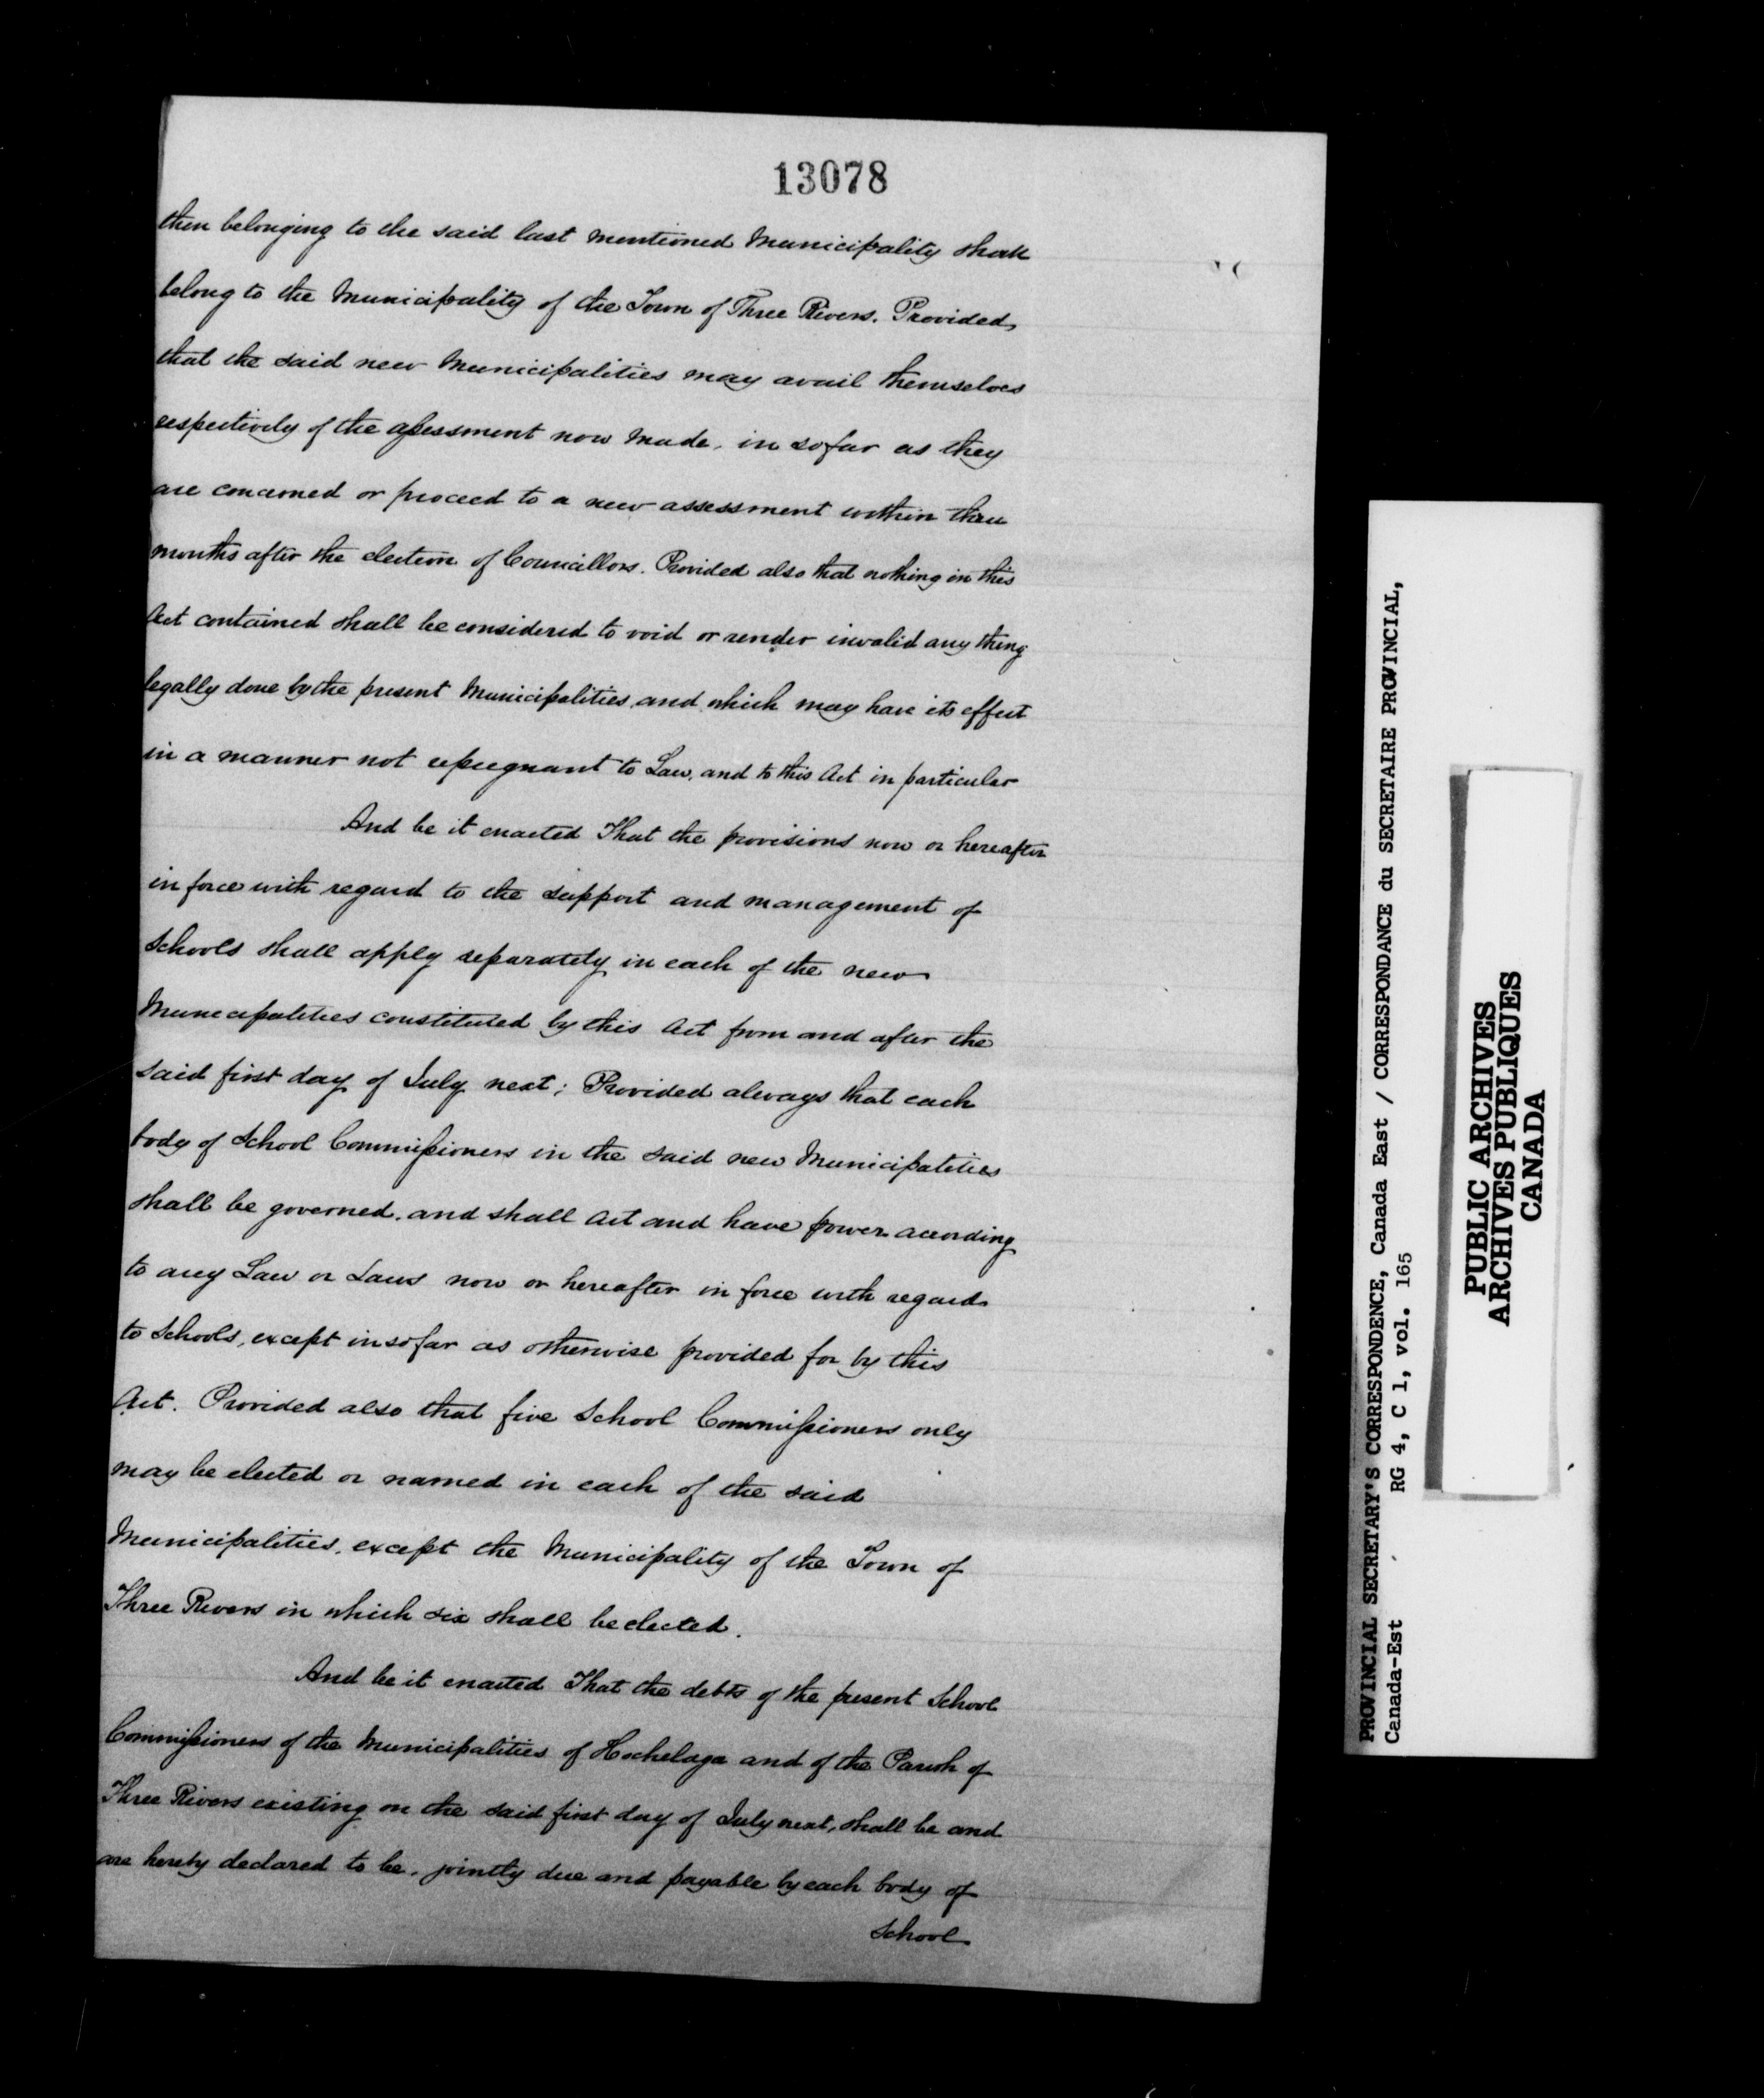 13078
then belonging to the said last mentioned Municipality shall
belong to the Municipality of the Town of Three Rivers. Provided
that the said new Municipalities may avail themselves
respectively of the assessment now made, in so far as they
are concerned or proceed to a new assessment within three
months after the election of Councillors. Provided also that nothing in this
Act contained shall be considered to void or render invalid any thing
legally done by the present Municipalities, and which may have its effect
in a manner not repugnant to Law, and to this Act in particular
And be it enacted That the provisions now or hereafter
in force with regard to the support and management of
Schools shall apply separately in each of the new
Municipalities constituted by this Act from and after the
said first day of July next; Provided always that each
body of School Commissioners in the said new Municipalities
shall be governed, and shall Act and have power according
to any Law or Laws now or hereafter in force with regard
to Schools, except in so far as otherwise provided for by this
Act. Provided also that five School Commissioners only
may be elected or named in each of the said
Municipalities, except the Municipality of the Town of
Three Rivers in which six shall be elected.
And be it enacted That the debts of the present School
Commissioners of the Municipalities of Hochelaga and of the Parish of
Three Rivers existing on the said first day of July next, shall be and
are hereby declared to be, jointly due and payable by each body of
School
PROVINCIAL SECRETARY'S CORRESPONDENCE, Canada East / CORRESPONDANCE du SECRETAIRE PROVINCIAL,
Canada-Est RG 4, C 1, vol. 165
PUBLIC ARCHIVES
ARCHIVES PUBLIQUES
CANADA